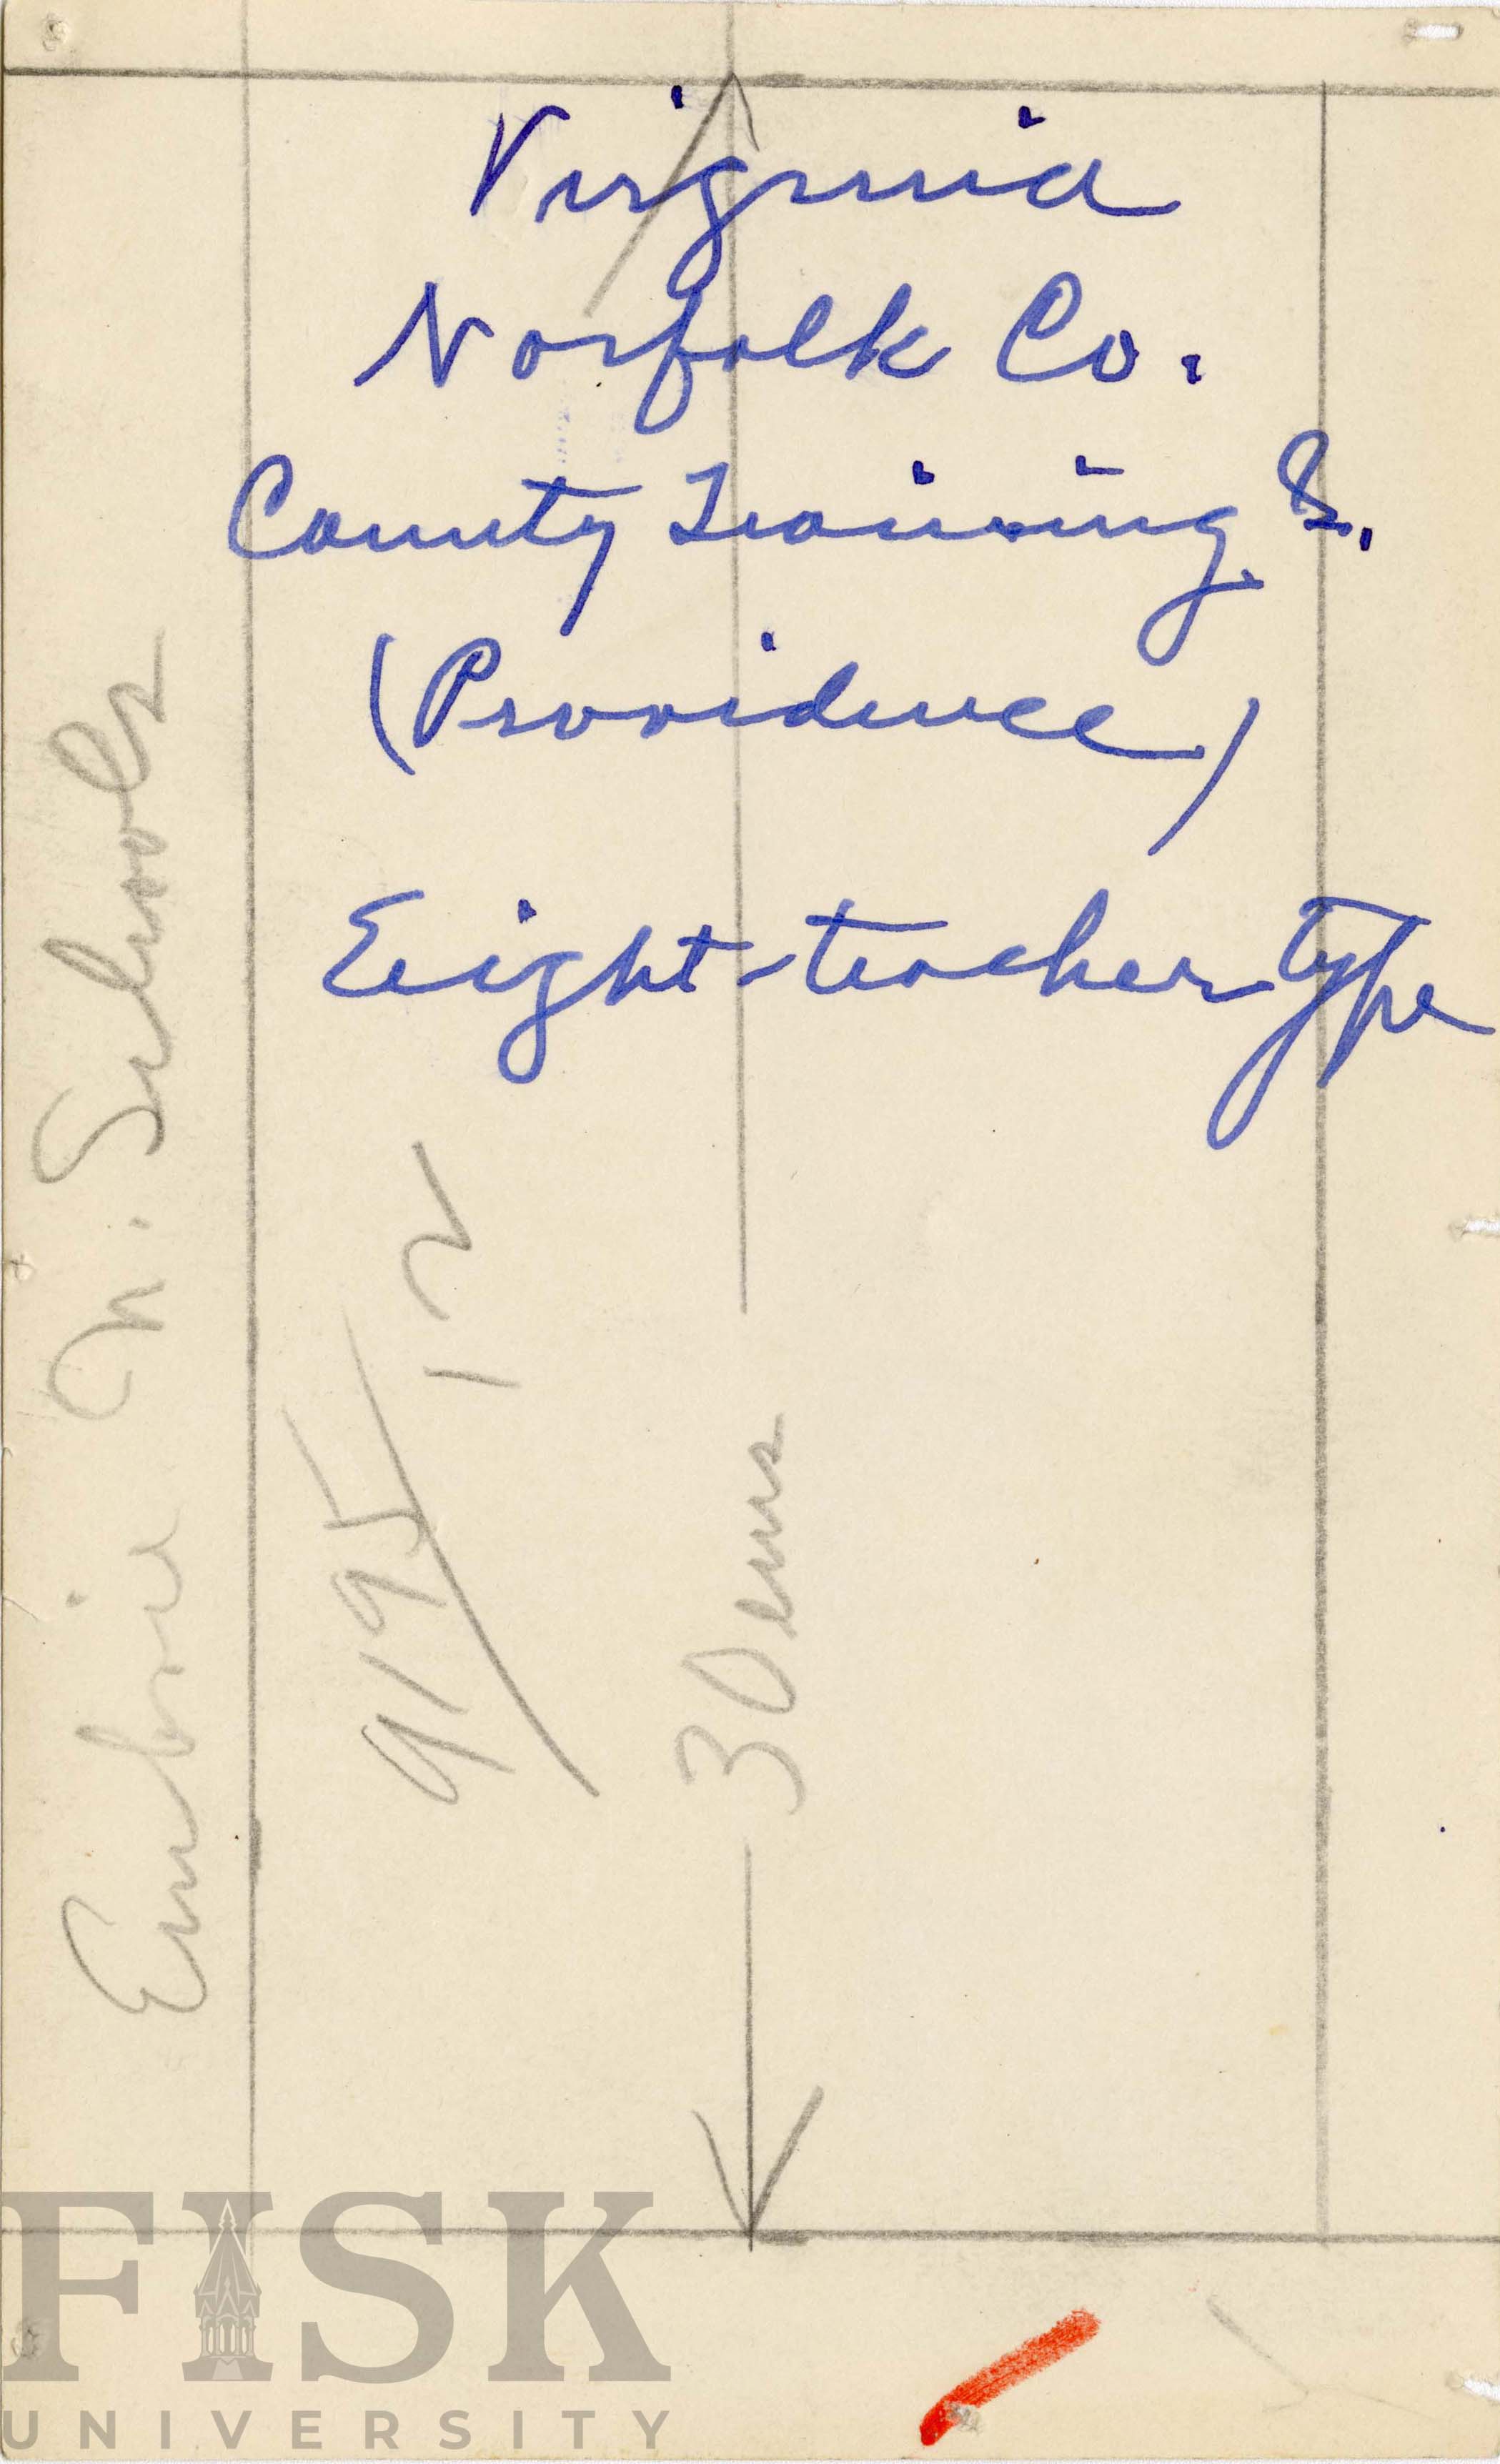 Virginia
Norfolk Co.
County Training S.
(Providence)
Eight-teacher type
Schools
9195
12
30 ems
FISK
UNIVERSITY